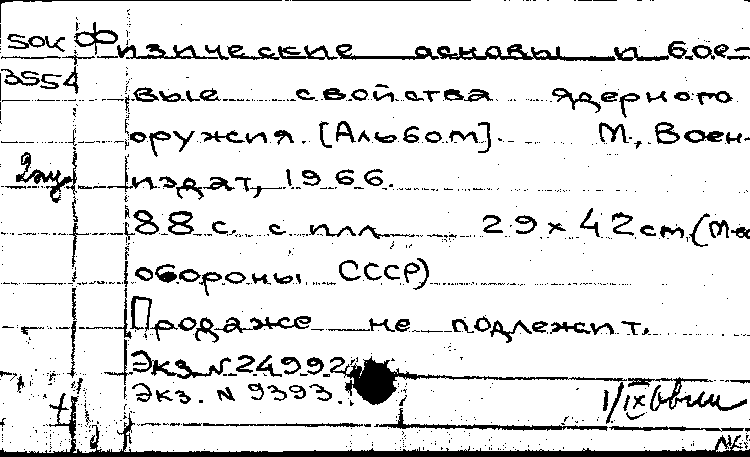 50К Физические основы и бое-
3554 вые свойства ядерного
оружия. [Альбом]. М., Воен-
2экз. издат, 1966.
88 с. с илл. 29 х 42 см (М-во
обороны СССР)
Продаже не подлежит.
Экз. N 24992
Экз. N 9393.
1/IX 66